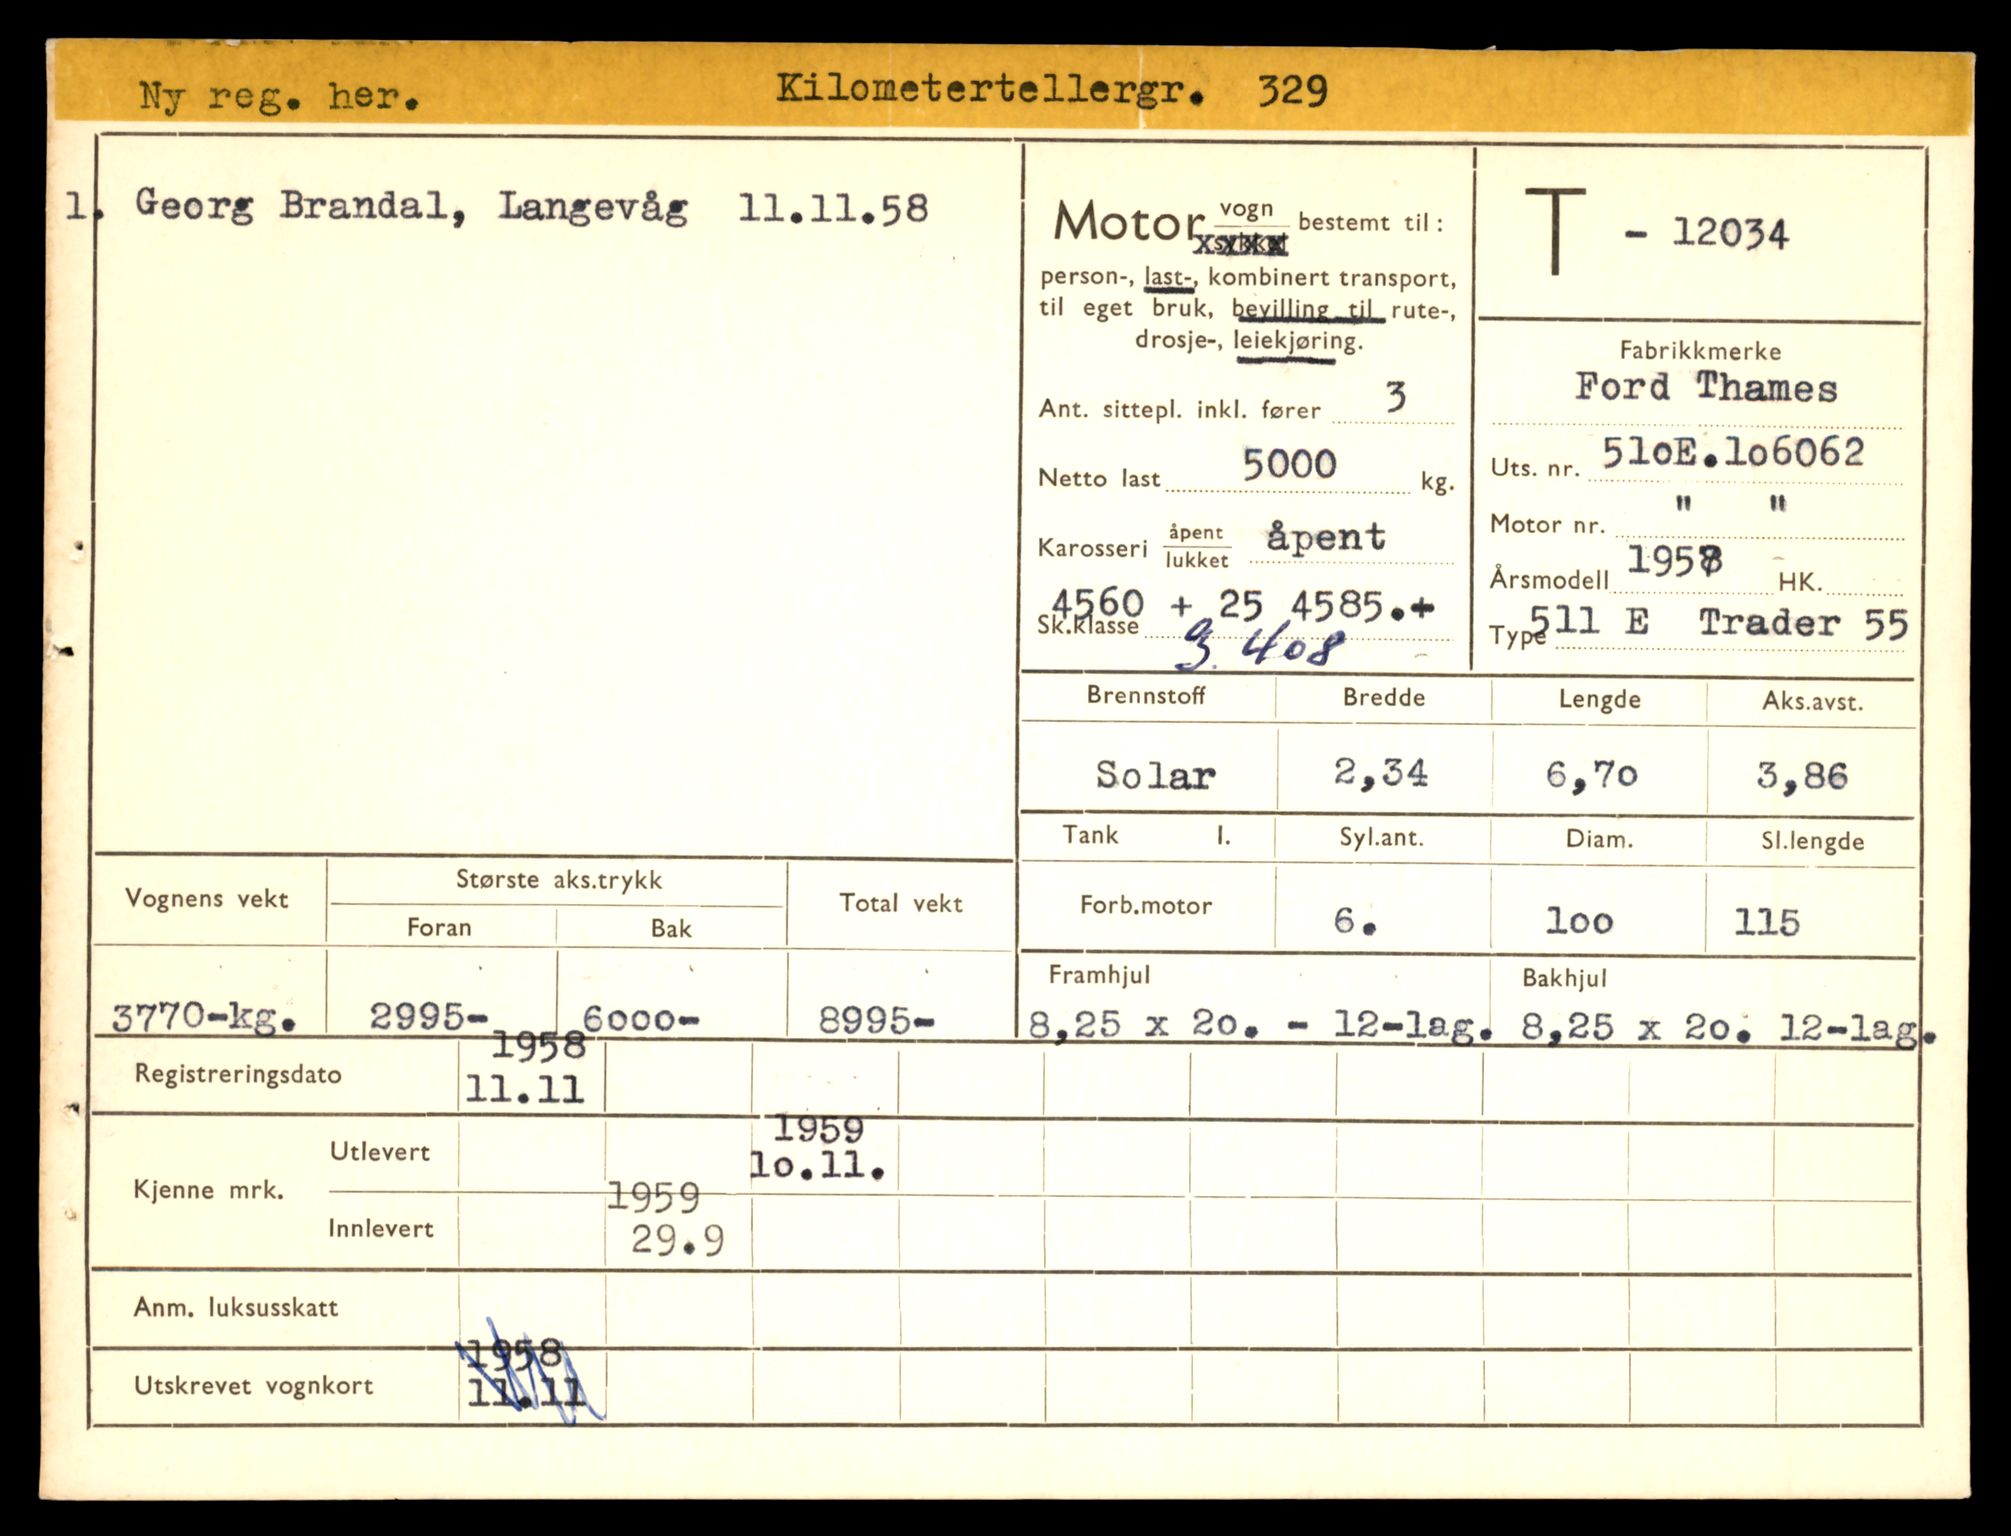 Ny reg. her. Kilometertellergr. 329
1. Georg Brandal, Langevåg 11.11.58
Motor vogn bestemt til:
person-, last-, kombinert transport,
til eget bruk, bevilling til rute-,
drosje-, leiekjøring.
Ant. sittepl. inkl. fører 3
Netto last 5000 kg.
Karosseri åpent åpent
lukket
4560 + 25 4585.+
Sk.klasse
g. 408
T - 12034
Fabrikkmerke
Ford Thames
Uts. nr. 51oE.1o6062
Motor nr. " "
Årsmodell 1957 HK.
Type 511 E Trader 55
Brennstoff Bredde Lengde Aks.avst.
Solar 2,34 6,7o 3,86
Tank l. Syl.ant. Diam. Sl.lengde
Forb.motor 6. 1oo 115
Framhjul Bakhjul
8,25 x 2o. - 12-lag. 8,25 x 2o. 12-lag.
Vognens vekt Største aks.trykk Total vekt
Foran Bak
3770-kg. 2995- 6ooo- 8995-
1958
Registreringsdato 11.11
1959
Utlevert 1o.11.
Kjenne mrk.
1959
Innlevert 29.9
Anm. luksusskatt
1958
Utskrevet vognkort 11.11